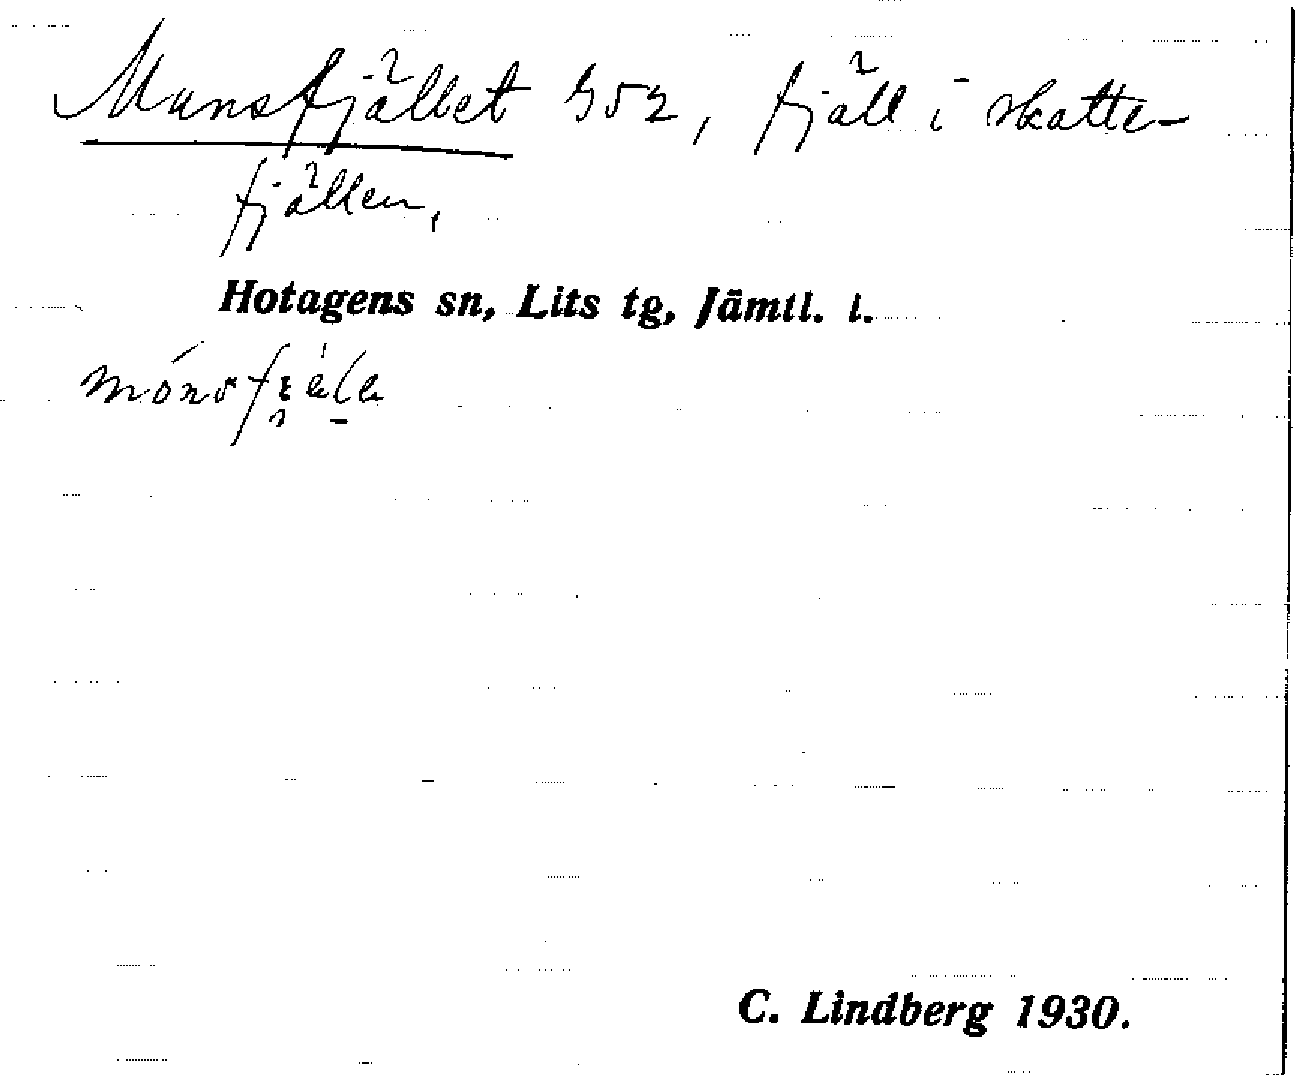 Munsfjället 952, fjäll i skatte-
fjällen,
Hotagens sn, Lits tg, Jämtl. l.
C. Lindberg 1930.